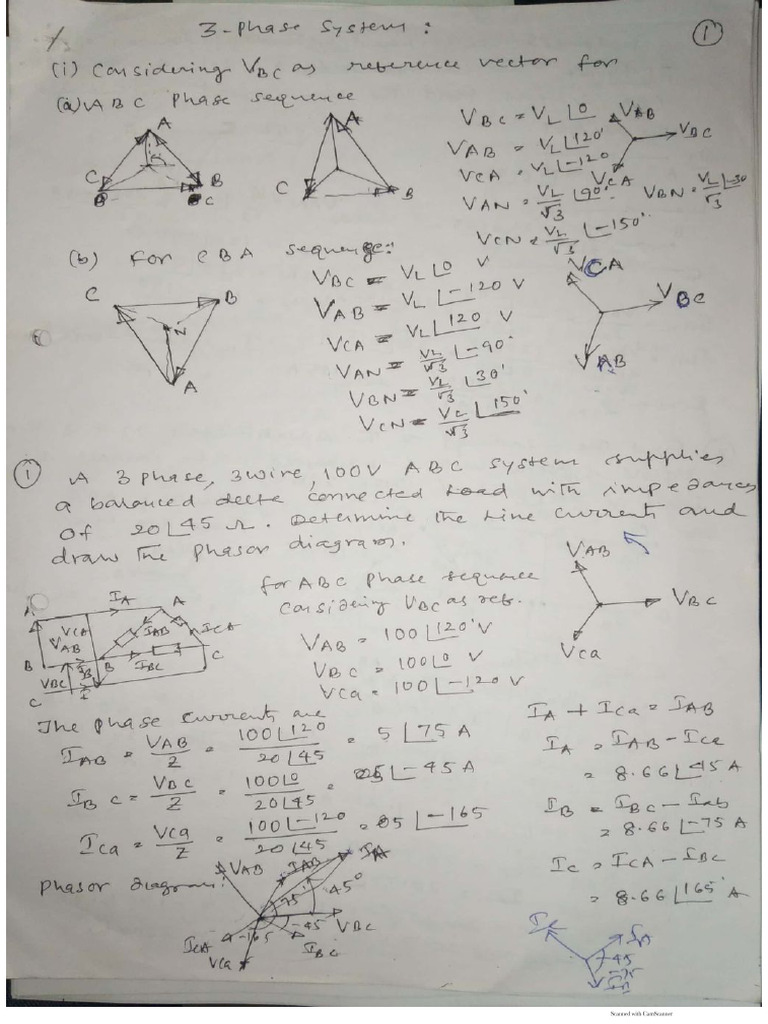 3-Phase System:
1
(i) Considering VBC as reference vector for
(a) ABC Phase sequence
A
C
B
C
A
C
B
VBC = VL∠0
VAB = VL∠120°
VCA = VL∠-120
VAN = VL/√3 ∠90° VBN = VL/√3 ∠-30
VCN = VL/√3 ∠-150°
VAB
VBC
VCA
(b) For CBA sequence:
C
B
N
A
VBC = VL∠0 V
VAB = VL∠-120 V
VCA = VL∠120 V
VAN = VL/√3 ∠-90°
VBN = VL/√3 ∠30°
VCN = VL/√3 ∠150°
VCA
VBC
VAB
1
A 3 phase, 3wire, 100V ABC system supplies
a balanced delta connected Load with impedances
of 20∠45 Ω. Determine the Line current and
draw the phasor diagram.
for ABC Phase sequence
Considering VBC as ref.
VAB = 100∠120° V
VBC = 100∠0 V
VCa = 100∠-120 V
VAB
VBC
VCa
A
IA
A
VCA
VAB
IAB
ICA
B
IB
B
IBC
C
VBC
C
The phase currents are
IAB = VAB/Z = 100∠120/20∠45 = 5∠75 A
IBC = VBC/Z = 100∠0/20∠45 = 5∠-45 A
ICa = VCa/Z = 100∠-120/20∠45 = 5∠-165
IA + ICa = IAB
IA = IAB - ICa
= 8.66∠45 A
IB = IBC - Iab
= 8.66∠-75 A
IC = ICA - IBC
= 8.66∠165° A
Phasor diagram:
VAB
IAB
IA
75°
45°
VBC
-45
IBC
-165
ICA
VCa
IC
IA
45
-75
IB
Scanned with CamScanner